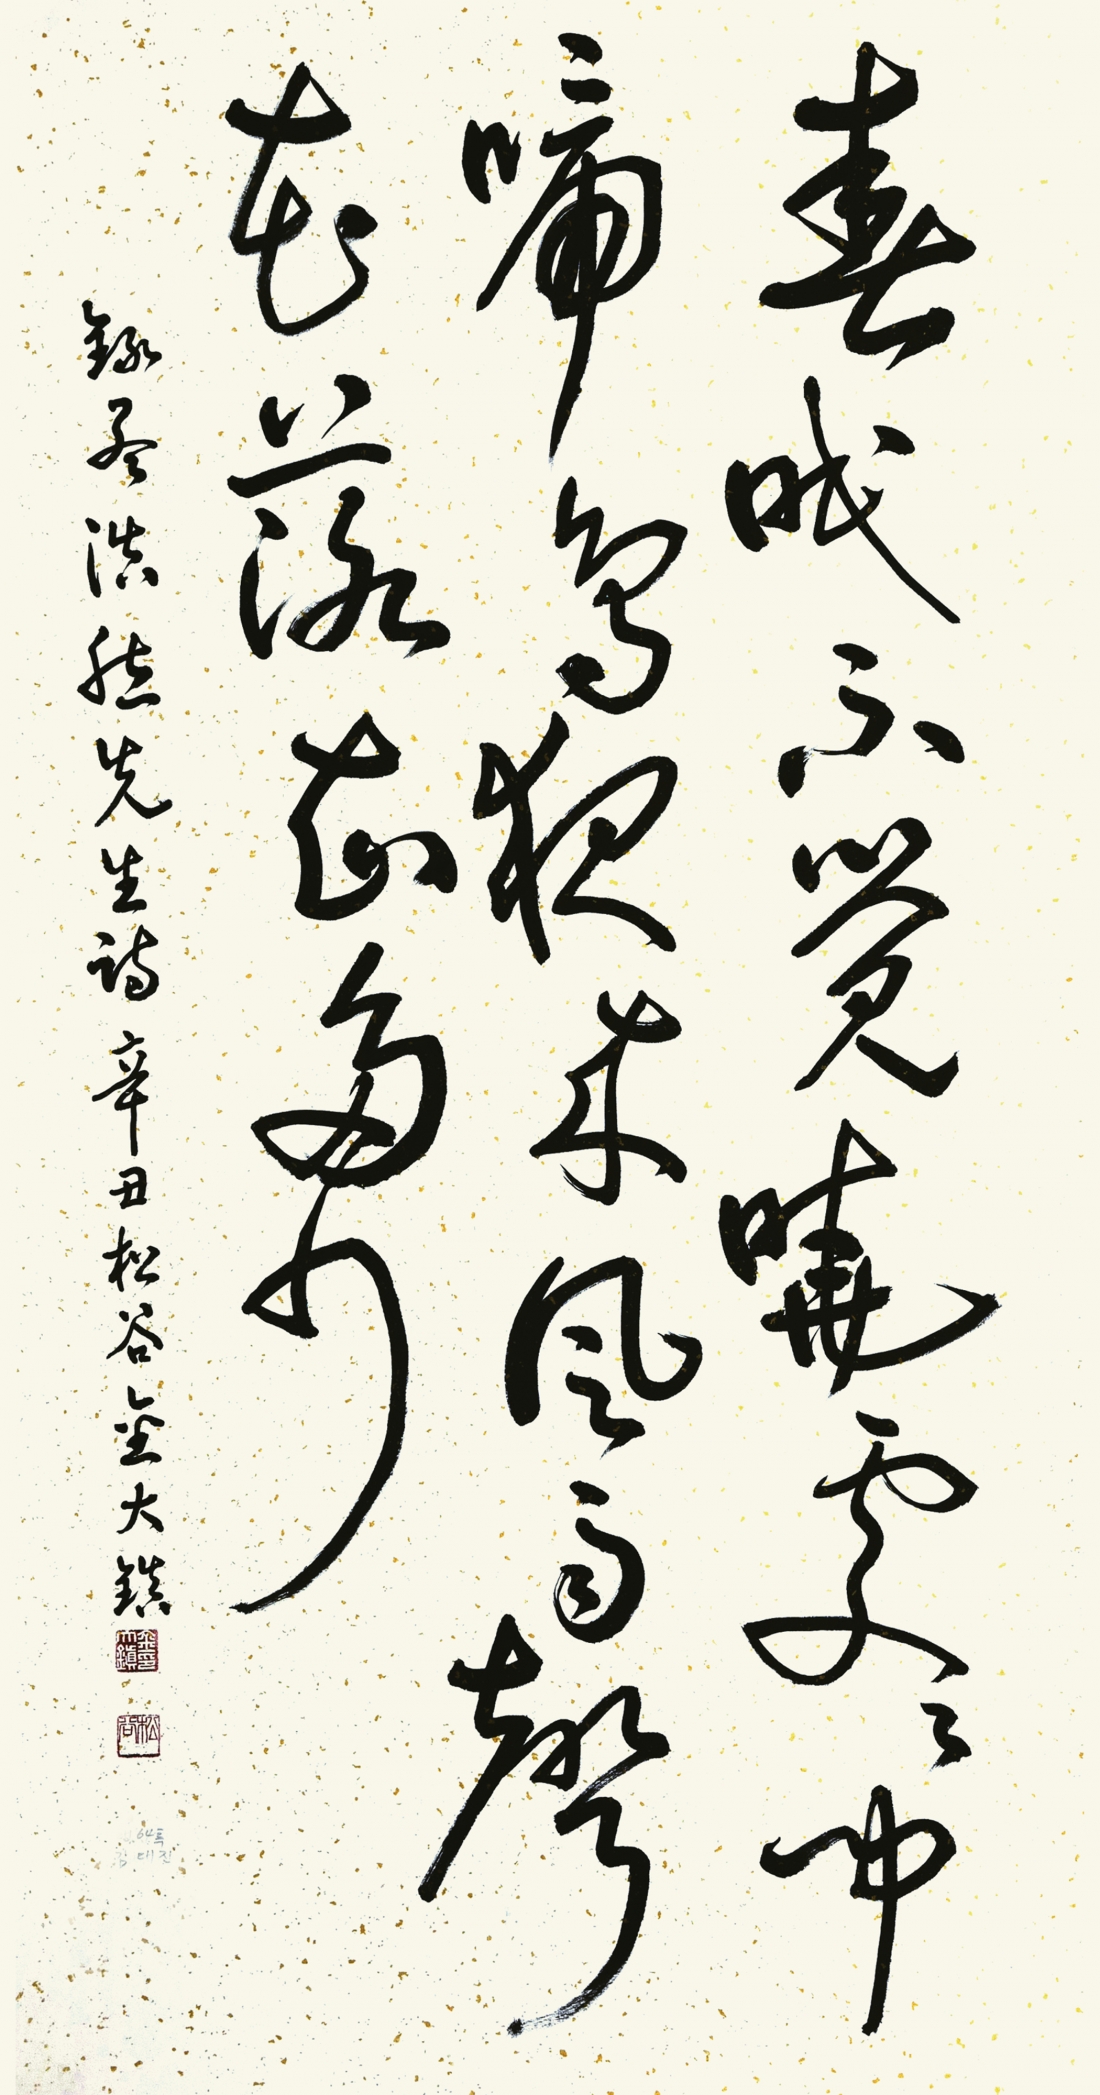 春眠不覺曉處々聞
啼鳥夜來風雨聲
花落知多少
錄孟浩然先生詩 辛丑松谷金大鎮
金印大鎮
松谷
64특
김대진